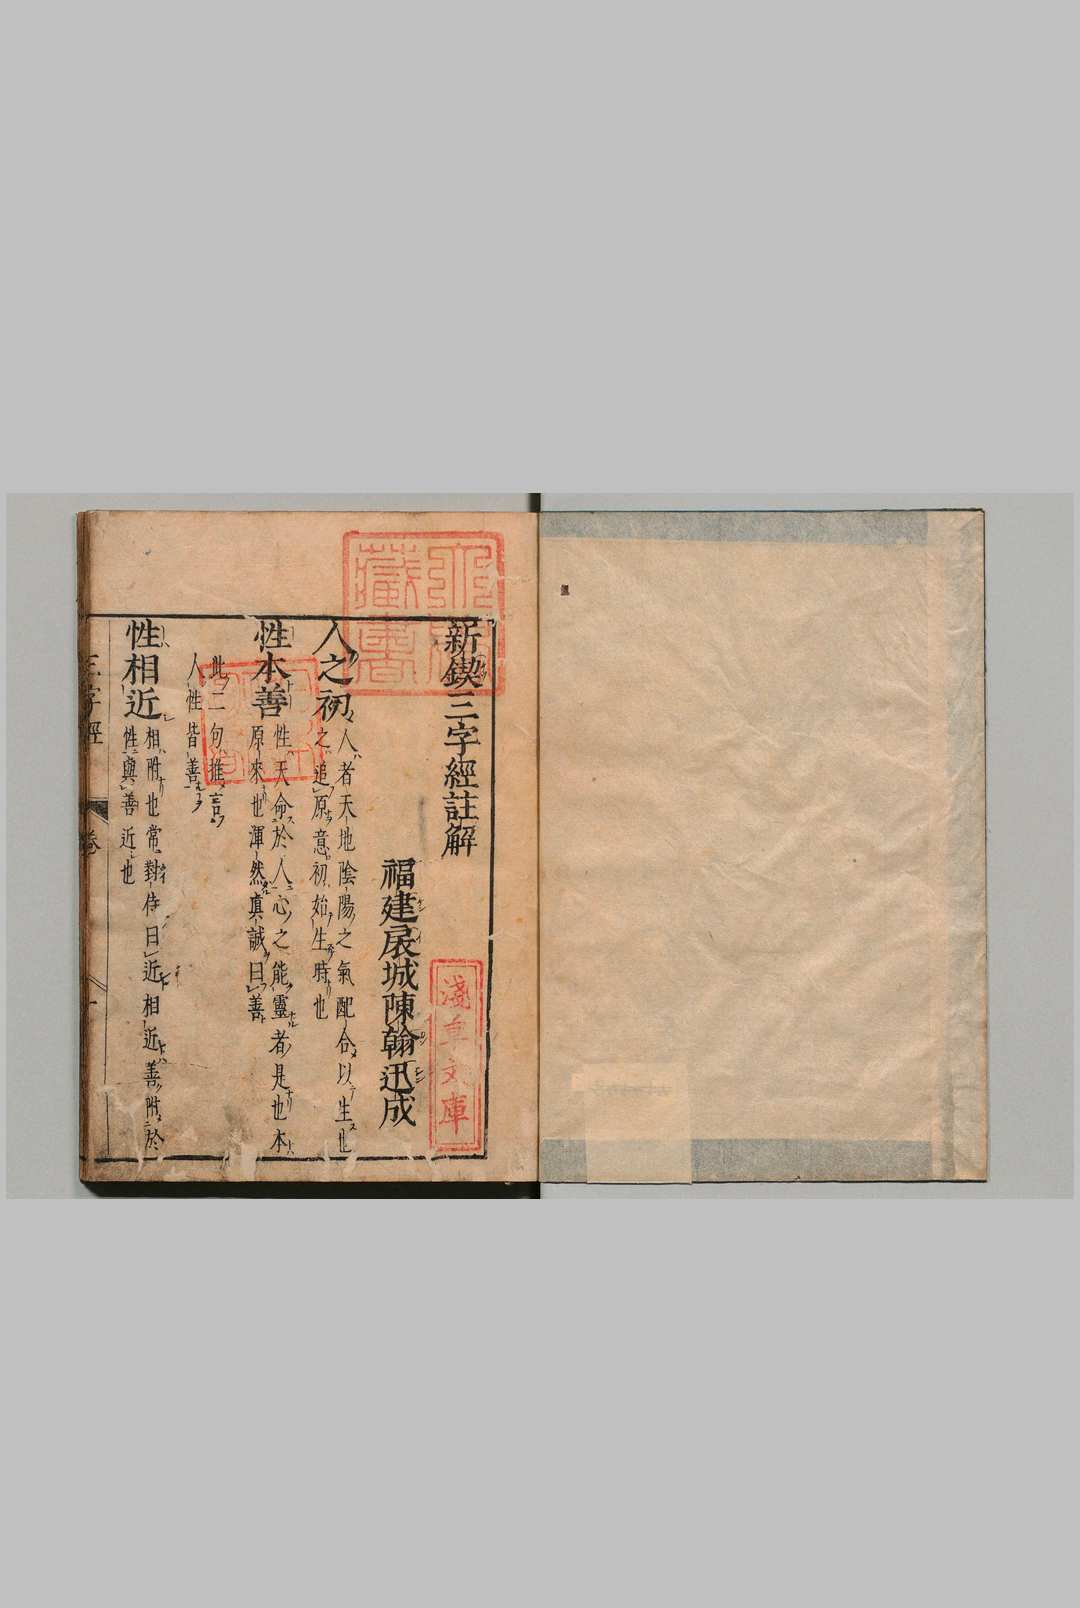 新鍥三字經註解
福建扆城陳翰迅成
人之初
人者天地陰陽之氣配合以生也
之追原意初始生時也
性本善
性天命於人心之能靈者是也本
原來也渾然真誠曰善
此二句推言
人性皆善
性相近
相附也常對待曰近相近善附於
性與善近也
三字經
卷
一
藏書
淺草文庫